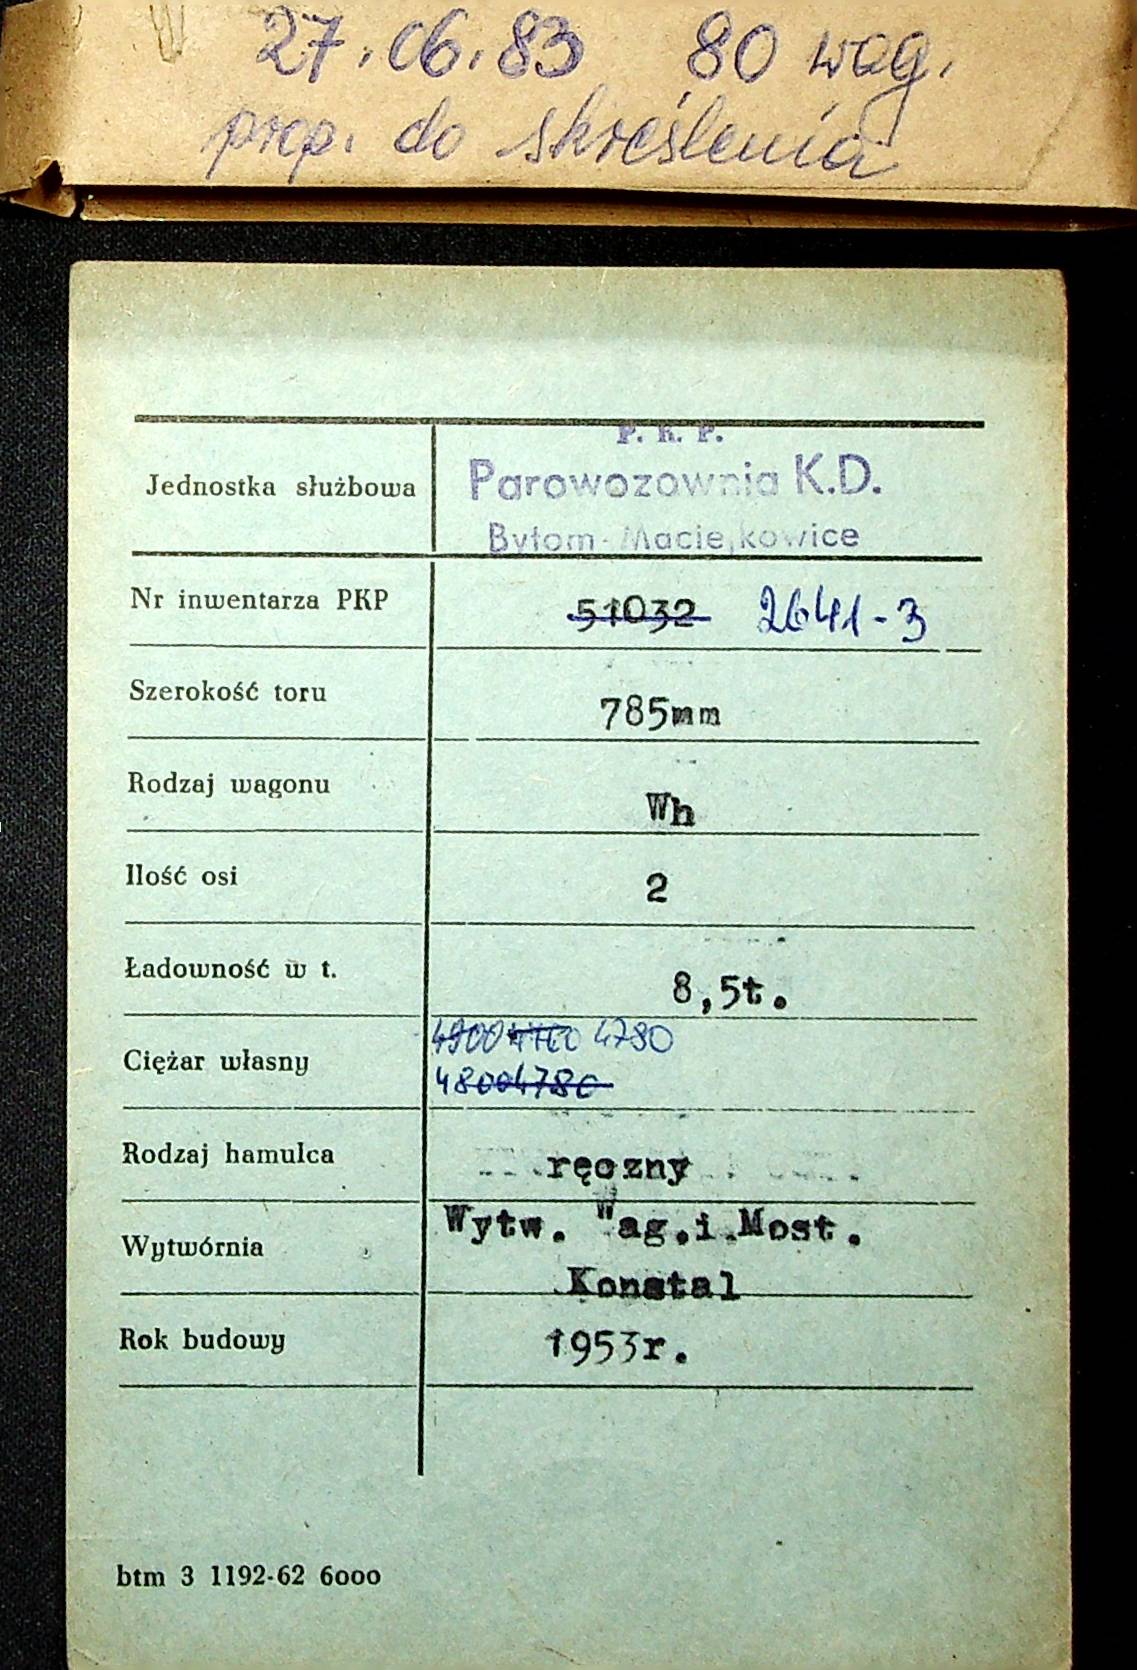 27.06.83 80 wag.
prop. do skreślenia
P. K. P.
Jednostka służbowa Parowozownia K.D.
Bytom-Maciejkowice
Nr inwentarza PKP 51032 2641-3
Szerokość toru 785mm
Rodzaj wagonu Wh
Ilość osi 2
Ładowność w t. 8,5t.
4900 4780
Ciężar własny
4800 4780
Rodzaj hamulca ręczny
Wytw. Wag.i Most.
Wytwórnia
Konstal
Rok budowy 1953r.
btm 3 1192-62 6000